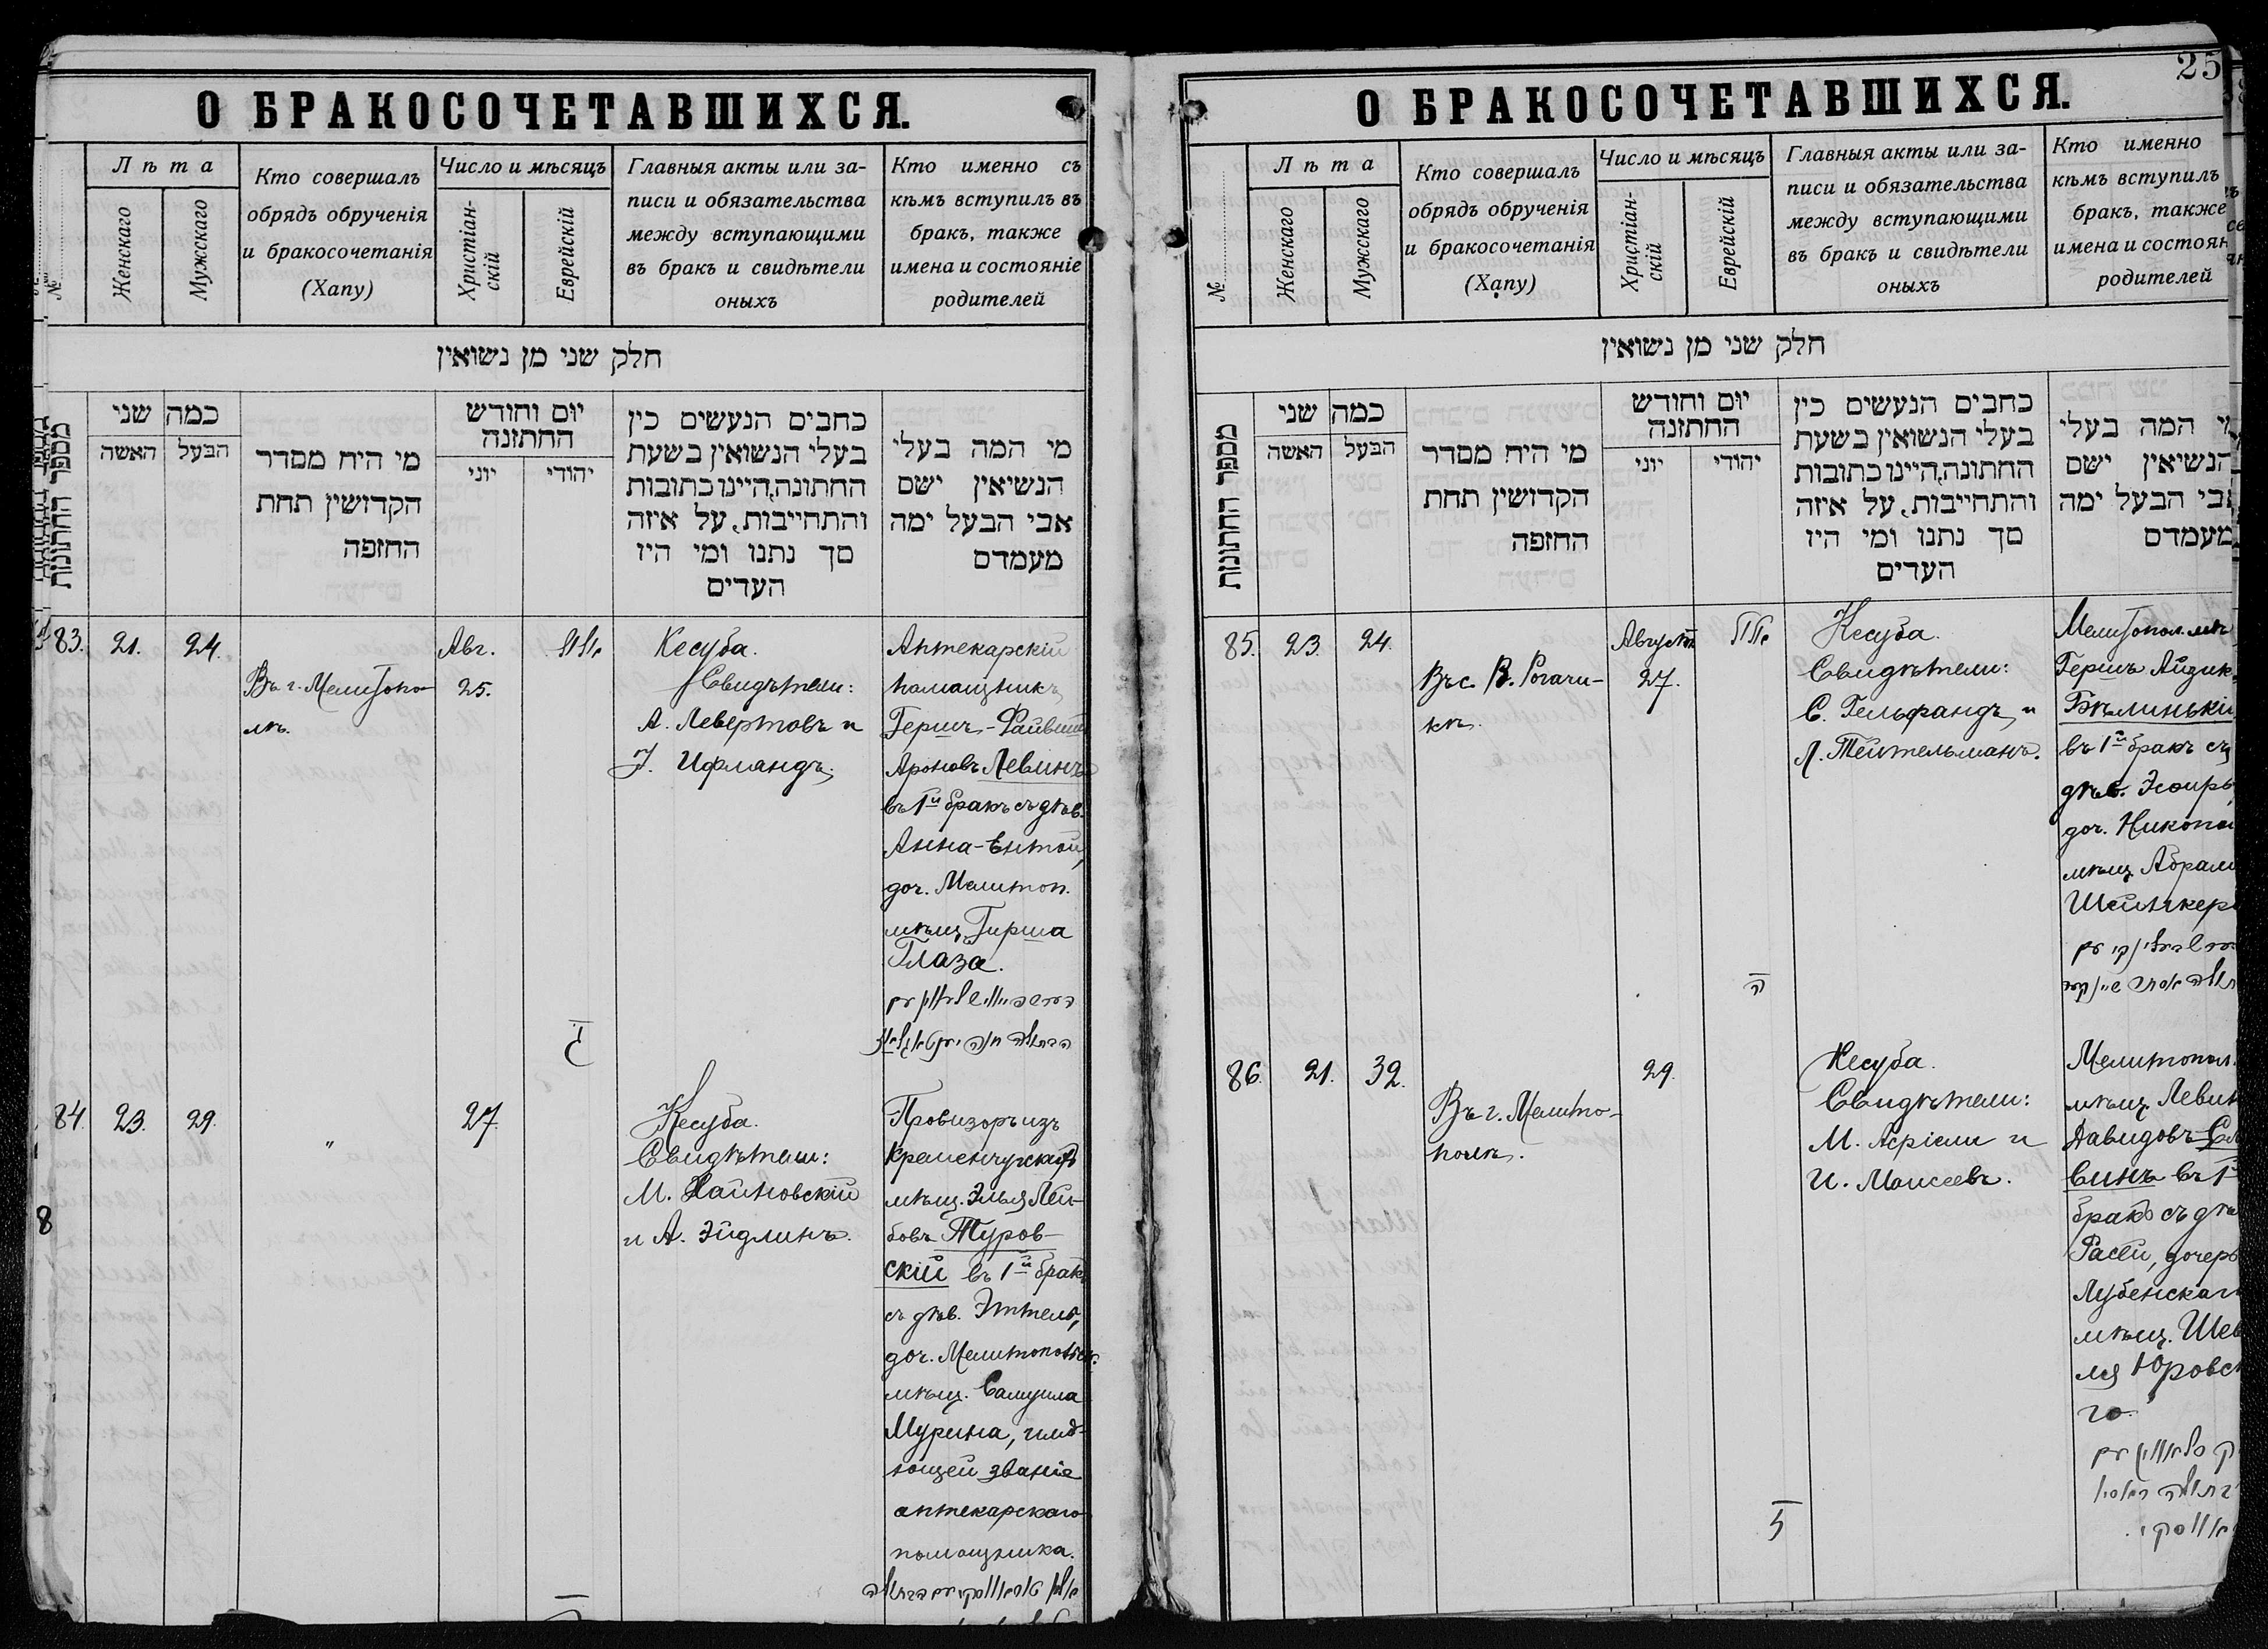 О БРАКОСОЧЕТАВШИХСЯ.
№
Лѣта
Женскаго
Мужскаго
Кто совершалъ
обрядъ обрученія
и бракосочетанія
(Хапу)
Число и мѣсяцъ
Христіан-
скій
Еврейскій
Главныя акты или за-
писи и обязательства
между вступающими
въ бракъ и свидѣтели
оныхъ
Кто именно съ
кѣмъ вступилъ въ
бракъ, также
имена и состояніе
родителей
חלק שני מן נשואין
מספר החתונות
כמה שני
האשה
הבעל
מי היה מסדר
הקדושין תחת
החזפה
יום וחודש
החתזנה
יוני
יהודי
כחבים הנעשים כין
בעלי הנשואין בשעת
החתונה,היינו כתובות
והתחייבות, על איזה
סך נתנו ומי היז
העדים
מי המה בעלי
הנשיאין ישם
אבי הבעל ימה
מעמדם
83.
21.
24.
Въ г. Мелитопо-
лѣ.
Авг.
25.
Кесуба.
Свидѣтели:
А. Левертовъ и
І. Ифландъ.
Аптекарскій
помощникъ
Гершъ-Файвиш
Ароновъ Левинъ
въ 1й бракъ съ дѣв.
Анна-Ентой,
доч. Мелитоп.
мѣщ. Гирша
Глаза.
84.
23.
29.
"
27.
Кесуба.
Свидѣтели:
М. Хайновскій
и А. Эйдлинъ.
Провизоръ изъ
Кременчугскихъ
мѣщ. Элья Лей-
бовъ Туров-
скій въ 1й бракъ
съ дѣв. Эттель,
доч. Мелитопольск.
мѣщ. Самуила
Мурина, имѣ-
ющей званіе
аптекарскаго
помощника.
8
25
О БРАКОСОЧЕТАВШИХСЯ.
№
Лѣта
Женскаго
Мужскаго
Кто совершалъ
обрядъ обрученія
и бракосочетанія
(Хапу)
Число и мѣсяцъ
Христіан-
скій
Еврейскій
Главныя акты или за-
писи и обязательства
между вступающими
въ бракъ и свидѣтели
оныхъ
Кто именно
кѣмъ вступилъ
бракъ, также
имена и состоян
родителей
חלק שני מן נשואין
מספר החתונות
כמה שני
האשה
הבעל
מי היה מסדר
הקדושין תחת
החזפה
יום וחודש
החתזנה
יוני
יהודי
כחבים הנעשים כין
בעלי הנשואין בשעת
החתונה,היינו כתובות
והתחייבות, על איזה
סך נתנו ומי היז
העדים
מי המה בעלי
הנשיאין ישם
אבי הבעל ימה
מעמדם
85.
23.
24.
Въ с. В. Рогачи-
кѣ.
Августа
27.
Кесуба.
Свидѣтели:
С. Гельфандъ и
Л. Тейтельманъ.
ה
Мелитопол. мѣщ
Гершъ Айзик
Бѣлинькій
въ 1й бракъ съ
дѣв. Эсфирь,
доч. Никопол
мѣщ. Абрама
Шейнкер
86.
21.
32.
Въ г. Мелито-
полѣ.
29.
Кесуба.
Свидѣтели:
М. Асріели и
И. Моисеевъ.
Мелитопол.
мѣщ. Левик
Давидовъ Сл
винъ въ 1й
бракъ съ дѣв
Расей, дочерь
Лубенскаго
мѣщ. Шев
ля Юровск
го.